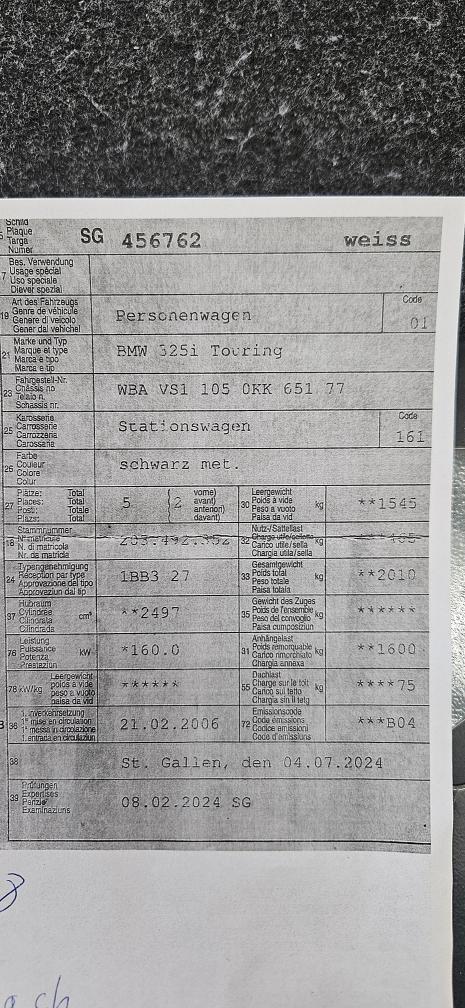 Schild
Plaque
Targa
Numer
SG 456762 weiss
Bes. Verwendung
Usage spécial
Uso speciale
Diever spezial
19 Art des Fahrzeugs
Genre de véhicule
Genere di veicolo
Gener da vehichel
Personenwagen
Code
01
21 Marke und Typ
Marque et type
Marca e tipo
Marca e tip
BMW 325i Touring
23 Fahrgestell-Nr.
Châssis no
Telaio n.
Schassis nr.
WBA VS1 105 0KK 651 77
25 Karosserie
Carrosserie
Carrozzeria
Carossaria
Stationswagen
Code
161
26 Farbe
Couleur
Colore
Colur
schwarz met.
27 Plätze: Total
Places: Total
Posti: Totale
Plazs: Total
5 (2 vorne)
avant)
anteriori)
davant)
30 Leergewicht
Poids à vide
Peso a vuoto
Paisa da vid
kg **1545
18 Stammnummer
N° matricule
N. di matricola
Nr. da matricla
203.492.352
32 Nutz-/Sattellast
Charge utile/sellette
Carico utile/sella
Chargia utila/sella
kg
24 Typengenehmigung
Réception par type
Approvazione del tipo
Approvaziun dal tip
1BB3 27
33 Gesamtgewicht
Poids total
Peso totale
Paisa totala
kg **2010
37 Hubraum
Cylindrée
Cilindrata
Cilindrada
cm³ **2497
35 Gewicht des Zuges
Poids de l'ensemble
Peso del convoglio
Paisa cumposiziun
kg ******
76 Leistung
Puissance
Potenza
Prestaziun
kW *160.0
31 Anhängelast
Poids remorquable
Carico rimorchiato
Chargia annexa
kg **1600
78 kW/kg Leergewicht
poids à vide
peso a vuoto
paisa da vid
******
55 Dachlast
Charge sur le toit
Carico sul tetto
Chargia sin il tetg
kg ****75
36 1. Inverkehrsetzung
1re mise en circulation
1a messa in circolazione
1. entrada en circulaziun
21.02.2006
72 Emissionscode
Code émissions
Codice emissioni
Code d'emissiuns
***B04
38 St. Gallen, den 04.07.2024
39 Prüfungen
Expertises
Perizie
Examinaziuns
08.02.2024 SG